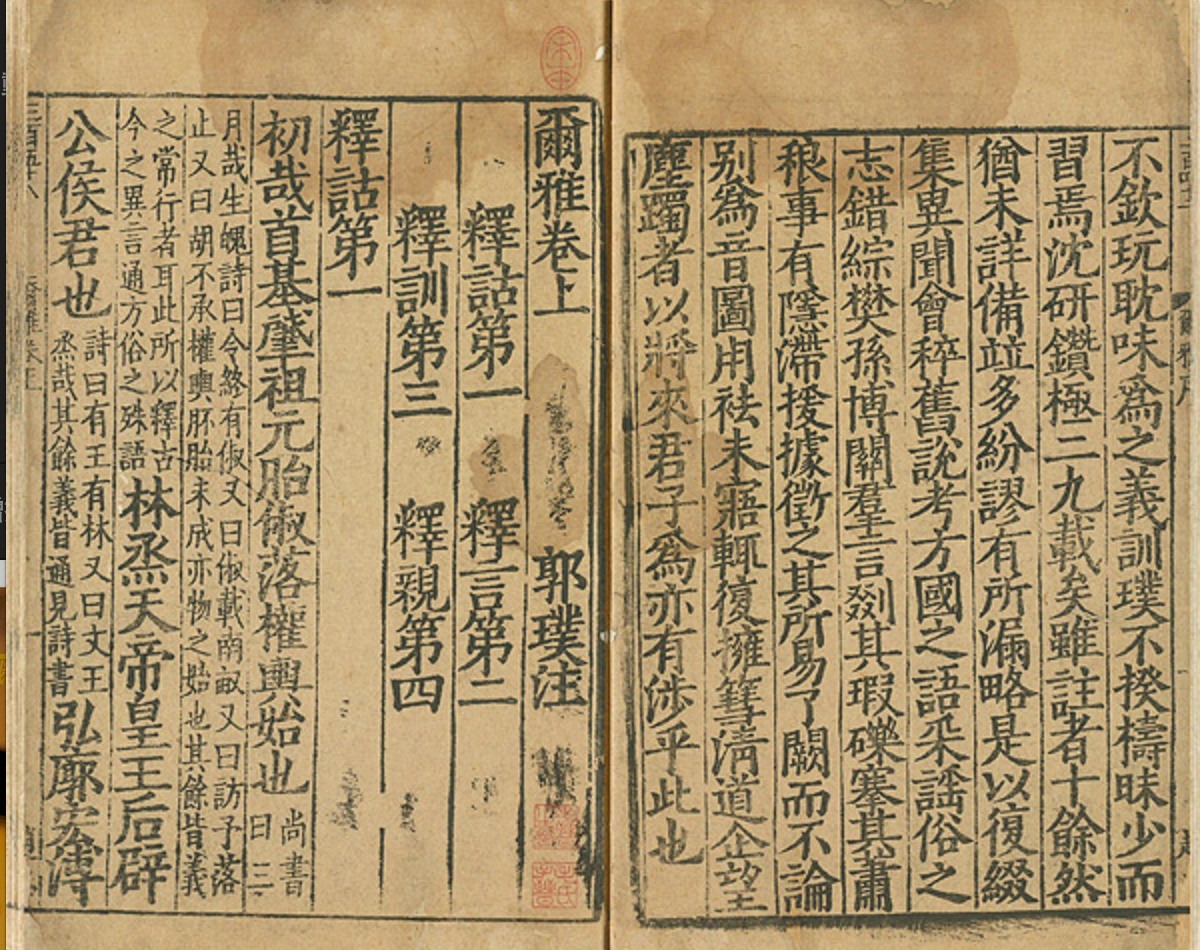 不欽玩耽味爲之義訓璞不揆檮昧少而
習焉沈研鑽極二九載矣雖註者十餘然
猶未詳備竝多紛謬有所漏略是以復綴
集異聞會稡舊說考方國之語采謡俗之
志錯綜樊孫博關羣言剟其瑕礫搴其蕭
稂事有隱滯援據徵之其所易了闕而不論
别爲音圖用祛未寤輒復擁篲清道企望
塵躅者以將來君子爲亦有涉乎此也
爾雅卷上 郭璞注
釋詁第一 釋言第二
釋訓第三 釋親第四
釋詁第一
初哉首基肇祖元胎俶落權輿始也 尚書曰三
月哉生魄詩曰令終有俶又曰俶載南畝又曰訪予落
止又曰胡不承權輿胚胎未成亦物之始也其餘皆義
之常行者耳此所以釋古
今之異言通方俗之殊語 林烝天帝皇王后辟
公侯君也 詩曰有王有林又曰文王
烝哉其餘義皆通見詩書 弘廓宏溥